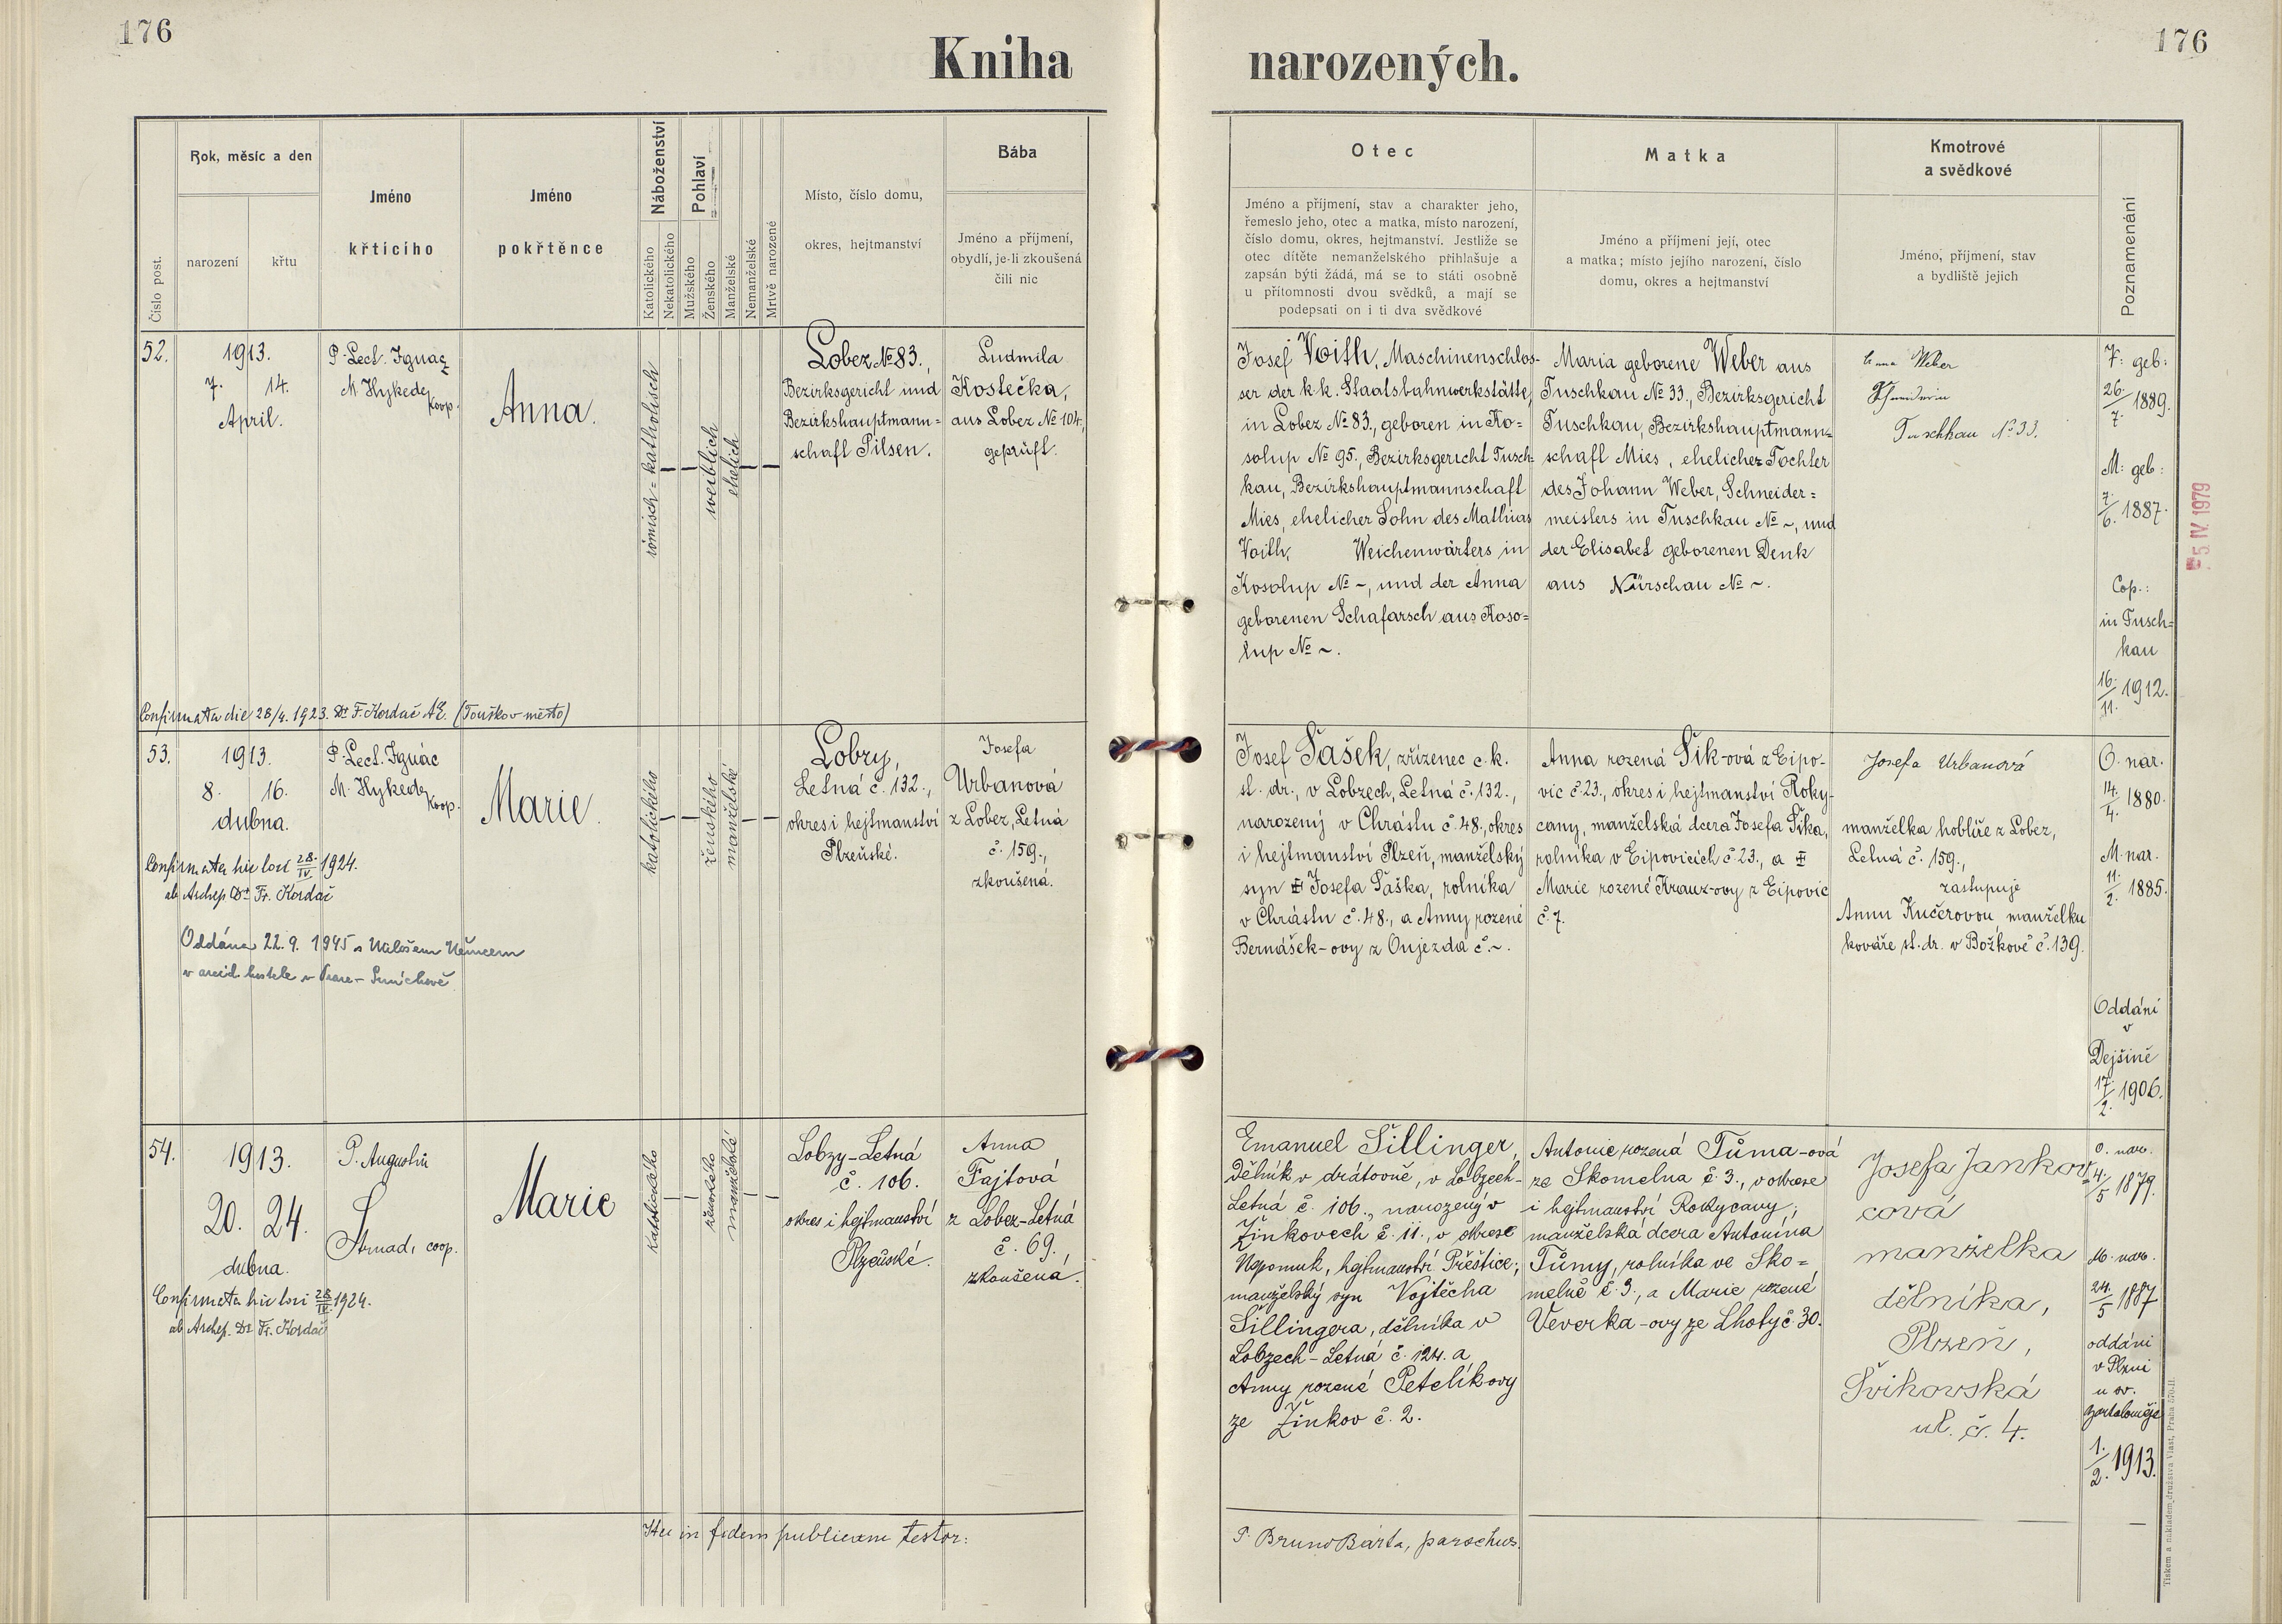 176
Kniha
narozených.
176
Číslo post.
Rok, měsíc a den
narození
křtu
Jméno
křticího
Jméno
pokřtěnce
Náboženství
Katolického
Nekatolického
Pohlaví
Mužského
Ženského
Manželské
Nemanželské
Mrtvě narozené
Místo, číslo domu,
okres, hejtmanství
Bába
Jméno a příjmení,
obydlí, je-li zkoušená
čili nic
Otec
Jméno a příjmení, stav a charakter jeho,
řemeslo jeho, otec a matka, místo narození,
číslo domu, okres, hejtmanství. Jestliže se
otec dítěte nemanželského přihlašuje a
zapsán býti žádá, má se to státi osobně
u přítomnosti dvou svědků, a mají se
podepsati on i ti dva svědkové
Matka
Jméno a příjmení její, otec
a matka; místo jejího narození, číslo
domu, okres a hejtmanství
Kmotrové
a svědkové
Jméno, příjmení, stav
a bydliště jejich
Poznamenání
52.
1913.
7. 14.
April.
P. Lect. Ignaz
M Hykede
Koop.
Anna.
römisch=katholisch
weiblich
ehelich
Lobez № 83.,
Bezirksgericht und
Bezirkshauptmann=
schaft Pilsen.
Ludmila
Kostečka,
aus Lobez № 104,
geprüft.
Josef Voith, Maschinenschlos-
ser der k.k. Staatsbahnwerkstätte,
in Lobez № 83., geboren in Ko=
solup № 95., Bezirksgericht Tusch=
kau, Bezirkshauptmannschaft
Mies, ehelicher Sohn des Mathias
Voith, Weichenwärters in
Kosolup № ~, und der Anna
geborenen Schafarsch aus Koso=
lup № ~.
Maria geborene Weber aus
Tuschkau № 33., Bezirksgericht
Tuschkau, Bezirkshauptmann=
schaft Mies, eheliche Tochter
des Johann Weber, Schneider=
meisters in Tuschkau № ~, und
der Elisabet geborenen Denk
aus Nürschau № ~.
Anna Weber
Tuschkau № 33.
V: geb:
26./7. 1889.
M: geb:
7./6. 1887.
Cop.:
in Tusch=
kau
16./11. 1912.
5. IV. 1979
Confirmata die 28/4. 1923. Dr F. Kordač AE. (Touškov město)
53.
1913.
8. 16.
dubna.
P. Lect. Ignác
M. Hykede
Koop.
Marie.
katolického
ženského
manželské
Lobzy,
Letná č. 132.,
okres i hejtmanství
Plzeňské.
Josefa
Urbanová
z Lobez, Letná
č. 159.,
zkoušená.
Josef Šašek, zřízenec c.k.
st. dr., v Lobzech, Letná č. 132.,
narozený v Chrástu č. 48., okres
i hejtmanství Plzeň, manželský
syn Josefa Šáška, rolníka
v Chrástu č. 48., a Anny rozené
Bernášek-ovy z Oujezda č. ~.
Anna rozená Šik-ová z Eipo-
vic č. 23., okres i hejtmanství Roky-
cany, manželská dcera Josefa Šika,
rolníka v Eipovicích č. 23., a
Marie rozené Krauz-ovy z Eipovic
č. 7.
Josefa Urbanová
manželka hoblíře z Lobez,
Letná č. 159.,
zastupuje
Annu Kučerovou manželku
kováře st. dr. v Božkově č. 139.
O. nar.
14./4. 1880.
M. nar.
11./2. 1885.
Oddáni
v
Dejšině
17./2. 1906.
Confirmata hic loci 28./IV 1924.
ab Archep. Dr Fr. Kordač
Oddána 22.9. 1945 s Milošem Němcem
v arcid. kostele v Praze - Smíchově
54.
1913.
20. 24.
dubna.
P. Augustin
Strnad, coop.
Marie
Katolického
ženského
manželské
Lobzy-Letná
č. 106.
okres i hejtmanství
Plzeňské.
Anna
Fajtová
z Lobez-Letná
č. 69.,
zkoušená.
Emanuel Šillinger,
dělník v drátovně, v Lobzech-
Letná č. 106., narozený v
Žinkovech č. 11., v okrese
Nepomuk, hejtmanství Přeštice,
manželský syn Vojtěcha
Šillingera, dělníka v
Lobzech-Letná č. 124. a
Anny rozené Petelíkovy
ze Žinkov č. 2.
Antonie rozená Tůma-ová
ze Skomelna č. 3., v okrese
i hejtmanství Rokycany,
manželská dcera Antonína
Tůmy, rolníka ve Sko=
melně č. 3., a Marie rozené
Veverka-ovy ze Lhoty č. 30.
Josefa Jankov
cová
manželka
dělníka,
Plzeň,
Švihovská
ul. č. 4.
O. nar.
4/5 1879.
M. nar.
24./5 1887
oddáni
v Plzni
u sv.
Bartoloměje
1./2. 1913.
Confirmata hic loci 28./IV. 1924.
ab Archep. Dr Fr. Kordač
Hu in fidem publicam testor:
P. Bruno Bárta, parochus.
Tiskem a nakladem družstva Vlast, Praha č. 570-II.